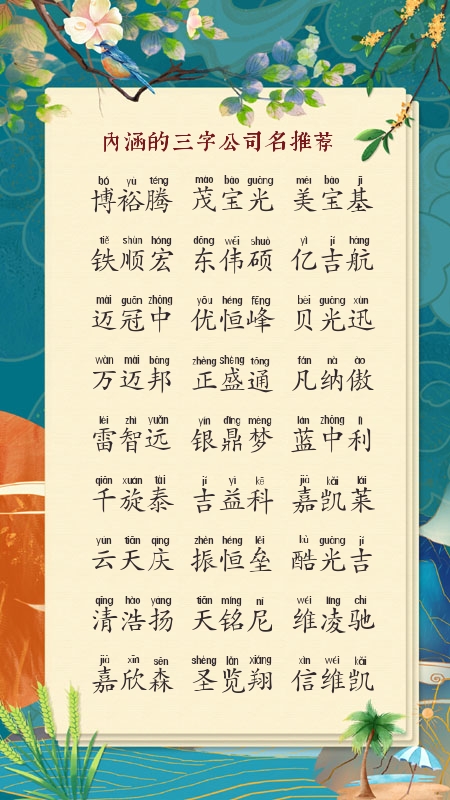 内涵的三字公司名推荐
bó yù téng mào bǎo guāng měi bǎo jī
博裕腾 茂宝光 美宝基
tiě shùn hóng dōng wěi shuò yì jí háng
铁顺宏 东伟硕 亿吉航
mài guān zhōng yōu héng fēng bèi guāng xùn
迈冠中 优恒峰 贝光迅
wàn mài bāng zhèng shèng tōng fán nà ào
万迈邦 正盛通 凡纳傲
léi zhì yuǎn yín dǐng mèng lán zhōng lì
雷智远 银鼎梦 蓝中利
qiān xuán tài jí yì kē jiā kǎi lái
千旋泰 吉益科 嘉凯莱
yún tiān qìng zhèn héng lěi kù guāng jí
云天庆 振恒垒 酷光吉
qīng hào yáng tiān míng ní wéi líng chí
清浩扬 天铭尼 维凌驰
jiā xīn sēn shèng lǎn xiáng xìn wéi kǎi
嘉欣森 圣览翔 信维凯